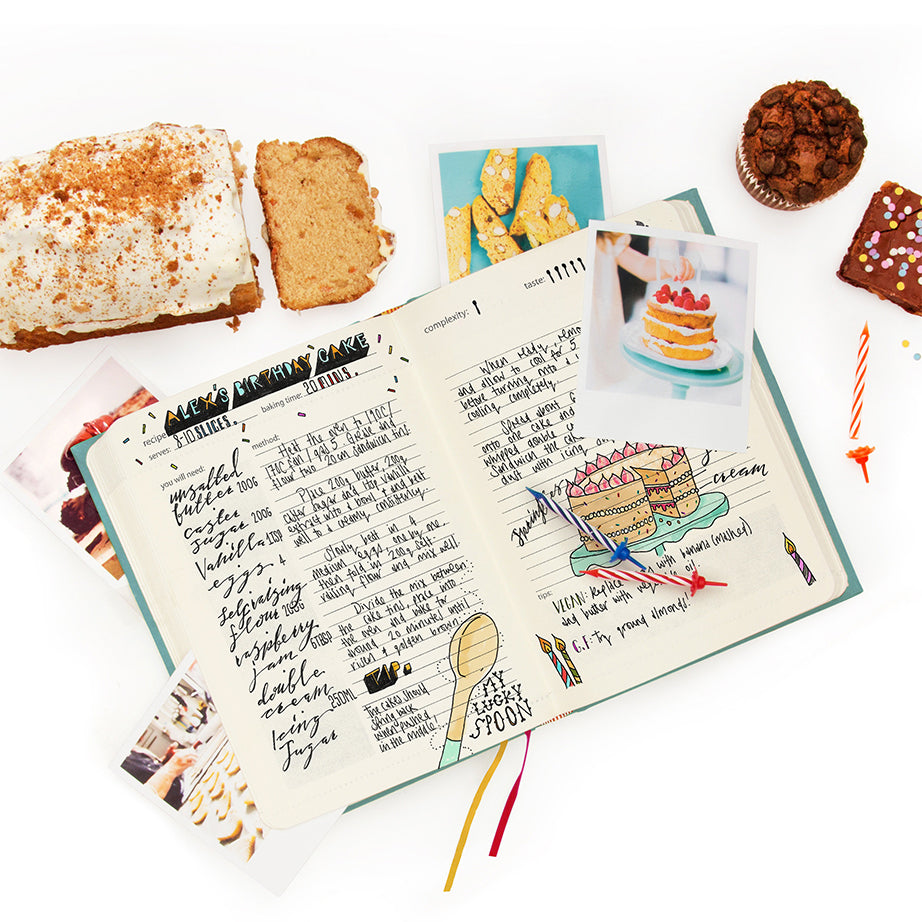 ALEX'S BIRTHDAY CAKE
recipe:
serves: 8-10 SLICES. baking time: 20 MINS.
you will need:
unsalted
butter 200G
caster
sugar 200G
Vanilla 1TSP
eggs 4
Self raising
flour 200G
raspberry
jam 6TBSP
double
cream 250ML
Icing
Sugar
method:
Heat the oven to 190C/
170C fan/gas 5. Grease and
flour two 20cm sandwich tins.
Place 200g butter, 200g
caster sugar and 1tsp vanilla
extract into a bowl & and beat
well to a creamy consistency.
Slowly beat in 4
medium eggs, one by one,
then fold in 200g self-
raising flour and mix well.
Divide the mix between
the cake tins, place into
the oven and bake for
around 20 minutes until
risen & golden brown.
TIP:
The cakes should
spring back
when pushed
in the middle!
MY
LUCKY
SPOON
complexity:
taste:
When ready, remo
and allow to cool for 5
before turning into a
cooling completely.
Spread about
onto one cake and
whipped double
Sandwich the
dust with icing
cream
tips:
VEGAN: Replace with banana (mushed)
and butter with oil!
G.F: Try ground almonds!